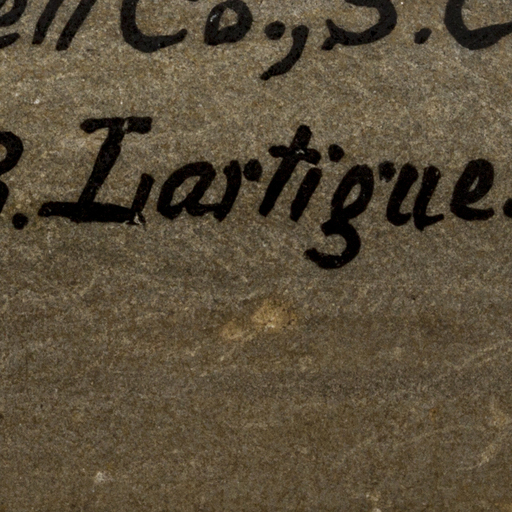 ell Co., S.C
B. Lartigue.